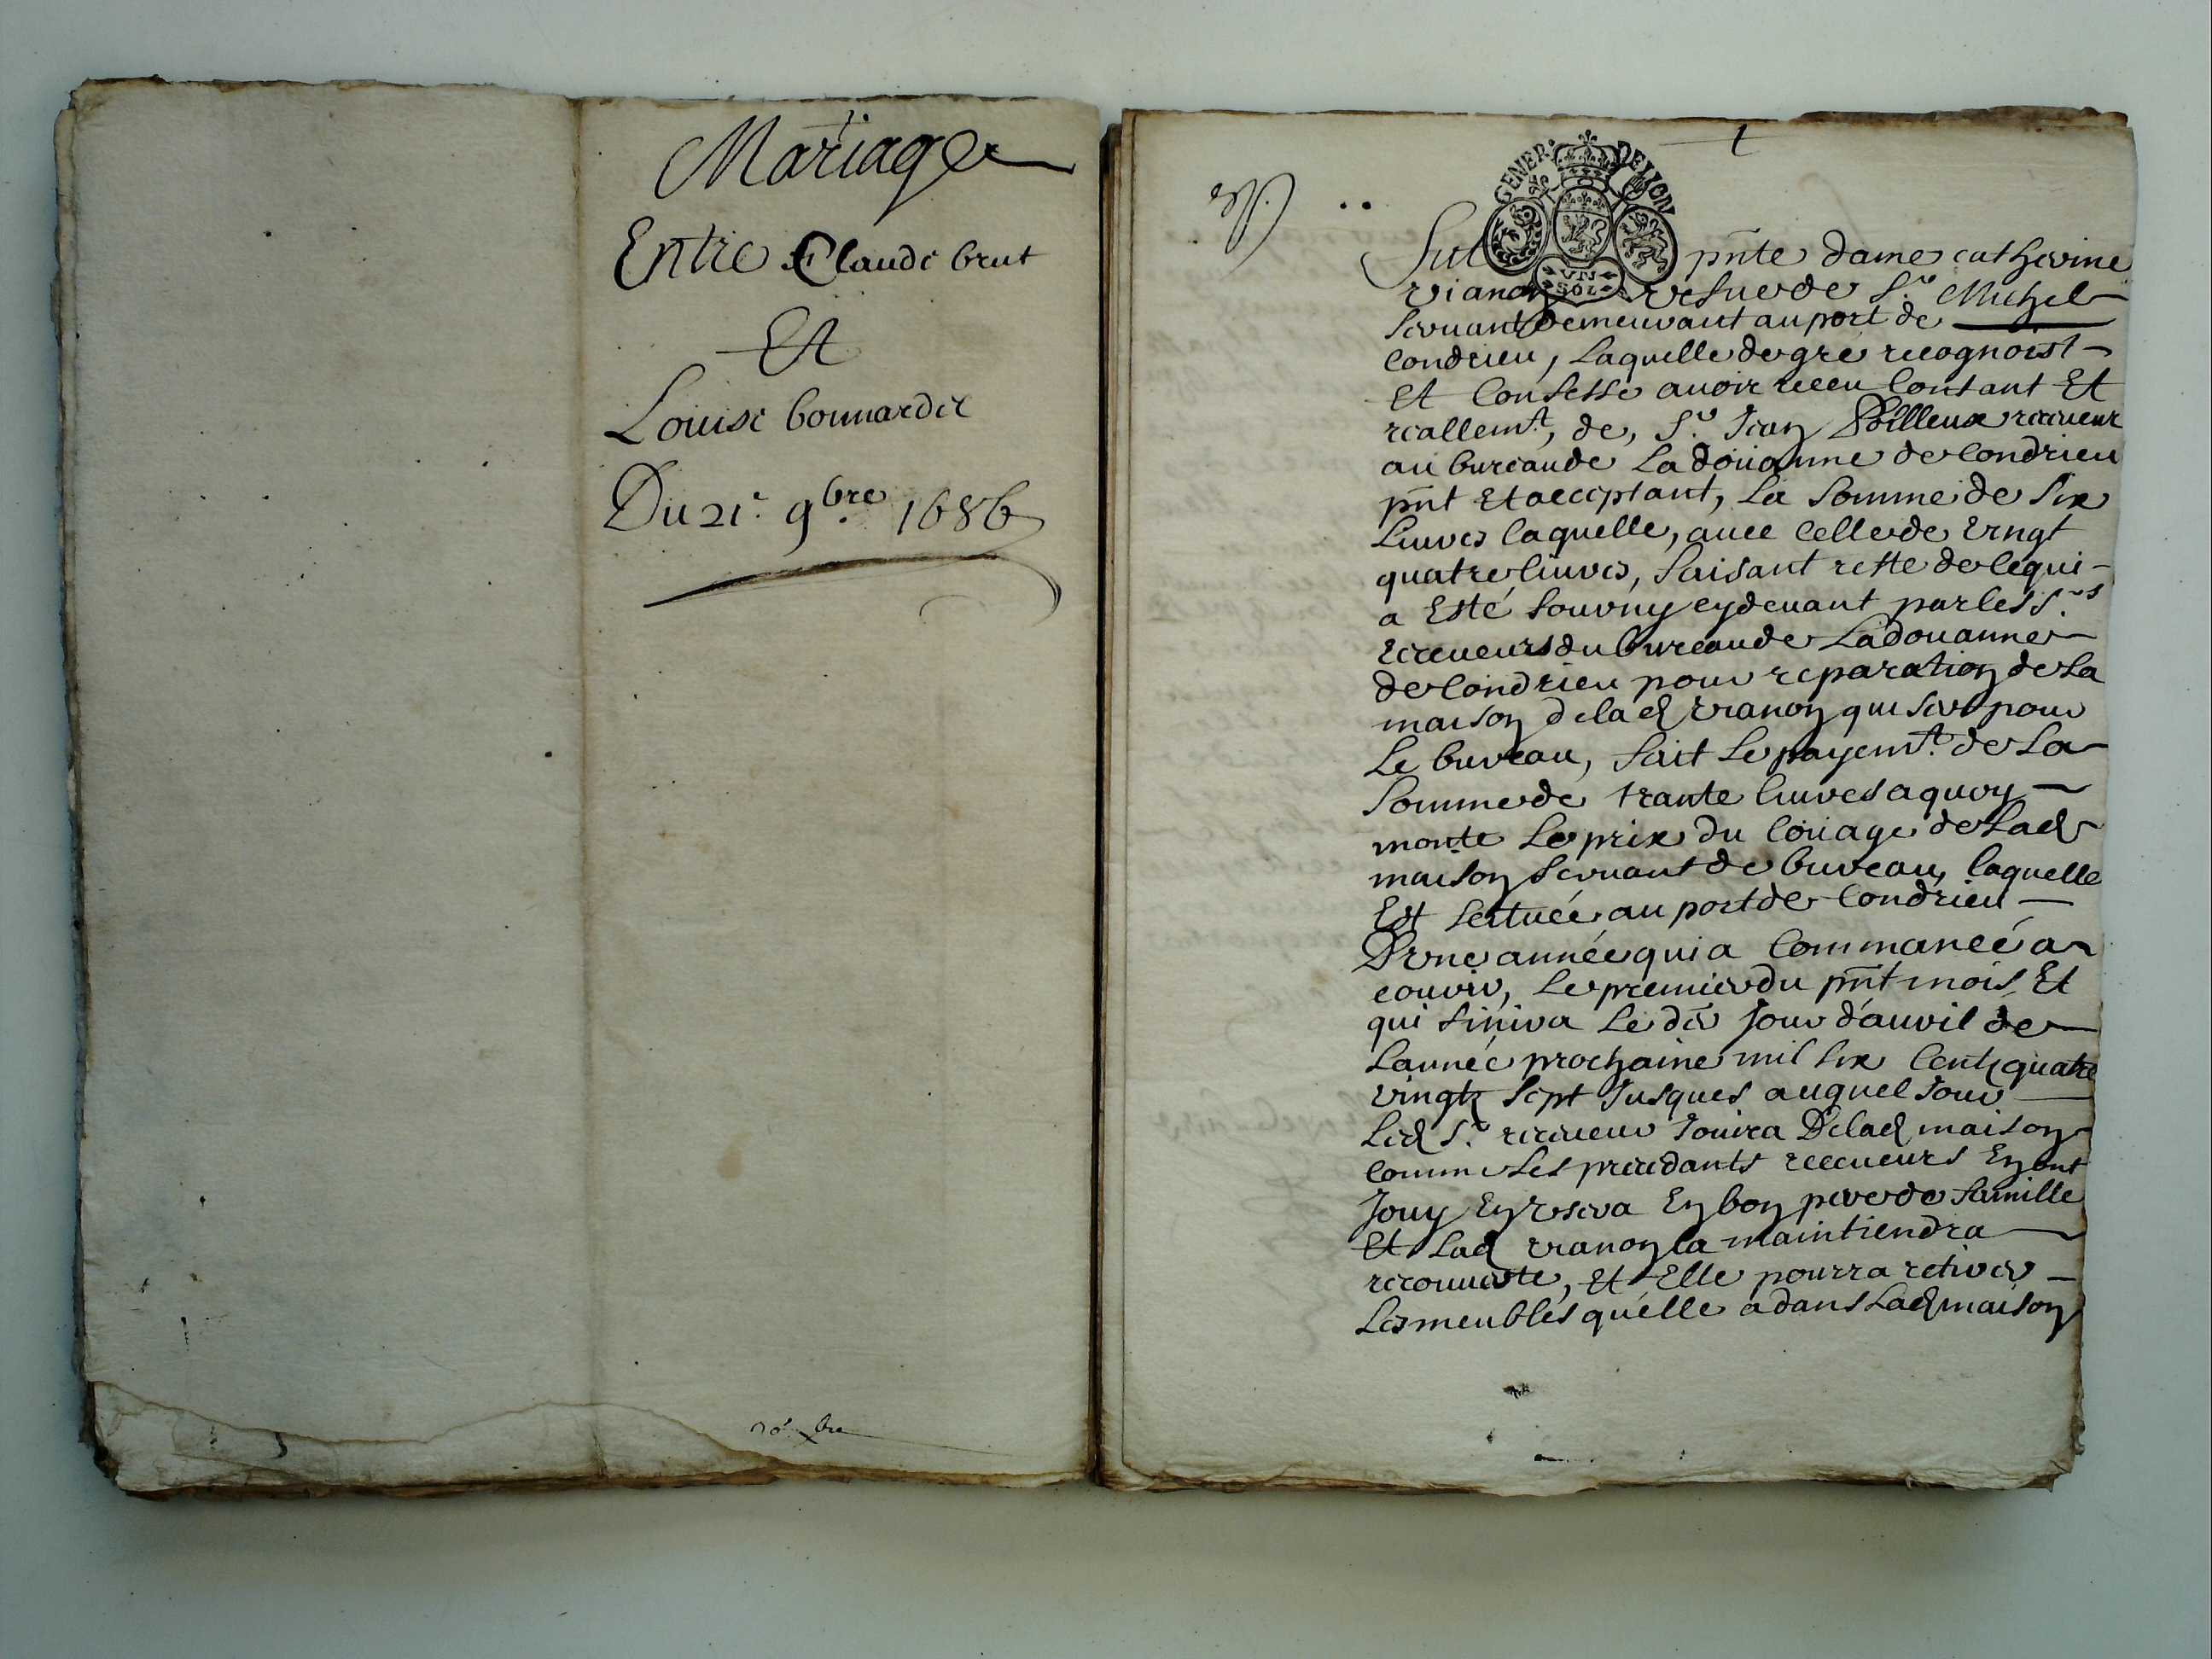 Mariage
Entre Claude brut
Et
Louise bonnardel
Du 21e 9bre 1686
GENER. DE LYON
VN
SOL
Fut pnte dame catherine
vianon vefue de Sr Michel
seruant demeurant au port de
Condrieu, Laquelle de gré recognoist
Et Confesse auoir receu Contant Et
reallemt, de, Sr Jean receueur
au bureau de La doüanne de Condrieu
pnt Et acceptant, La Somme de Six
Liures laquelle, auec Celle de vingt
quatre liures, faisant reste de ce qui
a Esté fourny cydeuant par les Srs
receueurs du bureau de La douanne
de Condrieu pour reparation de La
maison de lad vianon qui sert pour
Le bureau, fait Le payemt de La
Somme de trante liures a quoy
monte Le prix du loüage de Lad
maison seruant de bureau, laquelle
Est scituée au port de Condrieu
D'vne année qui a Commancé a
courir, Le premier du pnt mois Et
qui finira Le der Jour d'auril de
Lannée prochaine mil six Centz quatre
vingtz sept Jusques auquel Jour
Led Sr receueur Jouira De lad maison
comme Les precedants receueurs En ont
Jouy En vsera En bon pere de famille
Et Lad vianon la maintiendra
recouuerte, Et Elle pourra retirer
Les meubles qu'elle a dans Lad maison